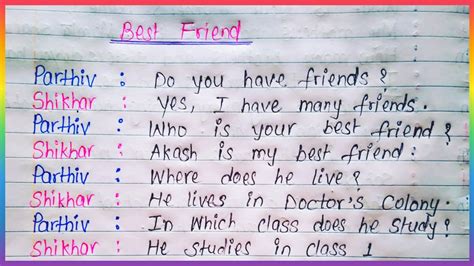 Best Friend
Parthiv : Do you have friends?
Shikhar : Yes, I have many friends.
Parthiv : Who is your best friend?
Shikhar : Akash is my best friend.
Parthiv : Where does he live?
Shikhar : He lives in Doctor's Colony.
Parthiv : In Which class does he study?
Shikhar : He studies in class 1